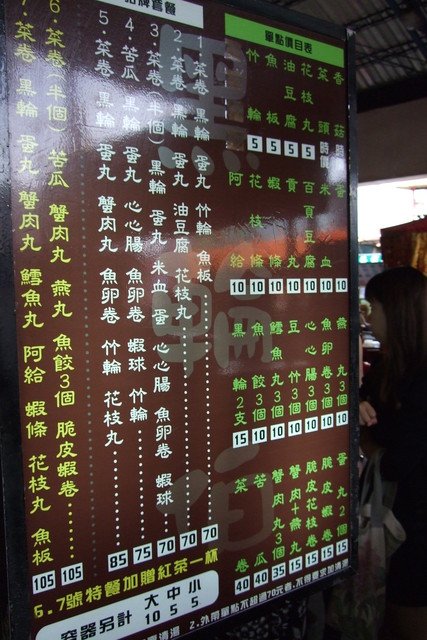 單點價目表
香菇 時價
菜頭 時價
花枝丸 5
油豆腐 5
魚板 5
竹輪 5
米血 10
百頁豆腐 10
貢丸 10
蝦條 10
花枝條 10
阿給 10
燕丸3個 10
魚卵卷3個 10
心心腸3個 10
鱈魚丸3個 10
魚餃3個 10
黑輪2支 15
蛋丸2個 15
脆皮蝦卷 15
脆皮花枝 15
蟹肉丸3個
苦瓜 40
菜卷 40
招牌套餐
1.菜卷 黑輪 蛋丸 竹輪 魚板 70
2.菜卷 黑輪 蛋丸 油豆腐 花枝丸 70
3.菜卷(半個) 黑輪 蛋丸 米血 蛋 心心腸 魚卵卷 蝦球 70
4.苦瓜 黑輪 蛋丸 心心腸 魚卵卷 蝦球 竹輪 75
5.菜卷 黑輪 蛋丸 蟹肉丸 魚卵卷 竹輪 花枝丸 85
6.菜卷(半個) 苦瓜 蟹肉丸 燕丸 魚餃3個 脆皮蝦卷 105
7.菜卷 黑輪 蛋丸 蟹肉丸 鱈魚丸 阿給 蝦條 花枝丸 魚板 105
6.7號特餐加贈紅茶一杯
容器另計 大10 中5 小5
2.外帶單點不超過70元者,不得要求加清湯